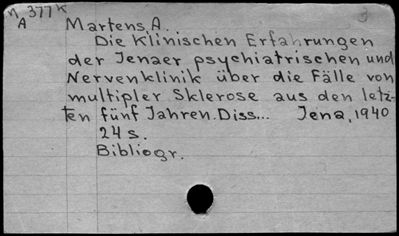 n. 377K
A
Martens, A.
Die Klinischen Erfahrungen
der Jenaer psychiatrischen und
Nervenklinik über die Fälle von
multipler Sklerose aus den letz-
ten fünf Jahren. Diss... Jena, 1940
24 s.
Bibliogr.